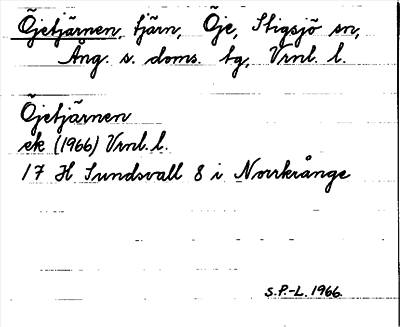 Öjetjärnen, tjärn, Öje, Stigsjö sn,
Ång. s. doms. tg, Vrnl. l.
Öjetjärnen
ek (1966) Vrnl. l.
17 H Sundsvall 8 i Norrkrånge
S.P.-L. 1966.